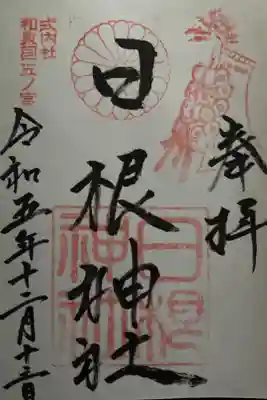 奉拝
日根神社
式内社
和泉国五ノ宮
令和五年十二月十三日
日根
神社